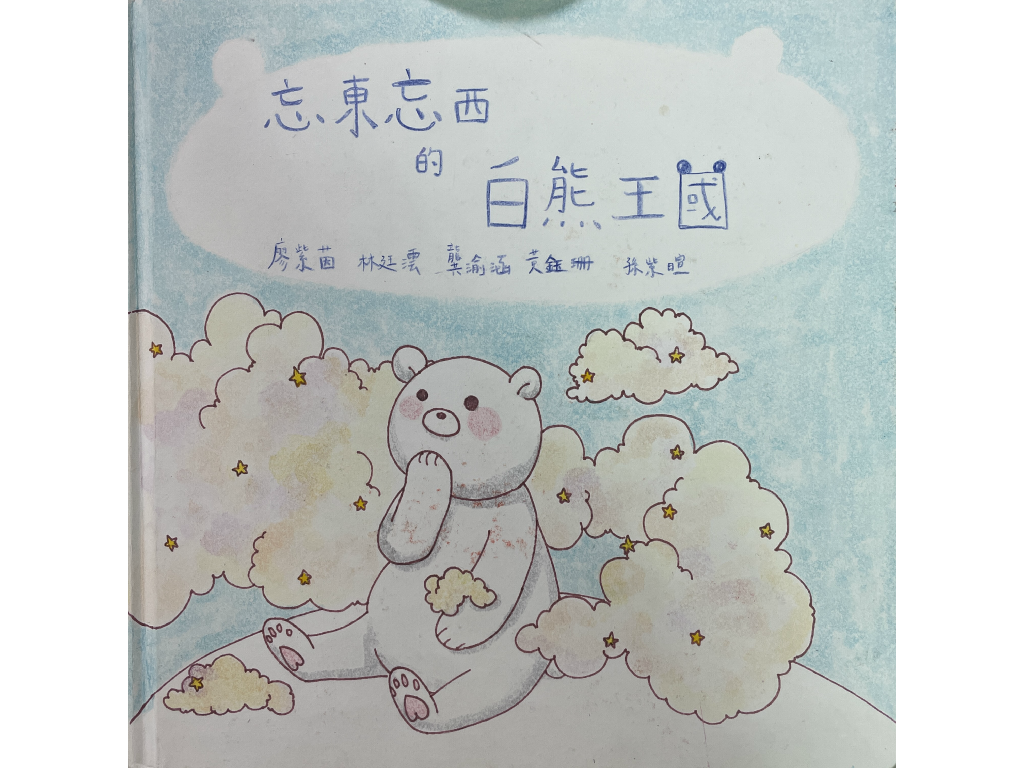 忘東忘西
的
白熊王國
廖紫茵 林廷澐 龔渝涵 黃鈺珊 孫紫暄